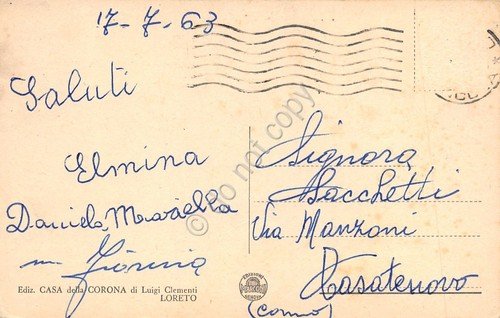 17-7-63
Saluti
Elmina
Daniela
Ediz. CASA della CORONA di Luigi Clementi
LORETO
Signora
Sacchetti
Via Manzoni
Casatenovo
(Como)
© do not copy